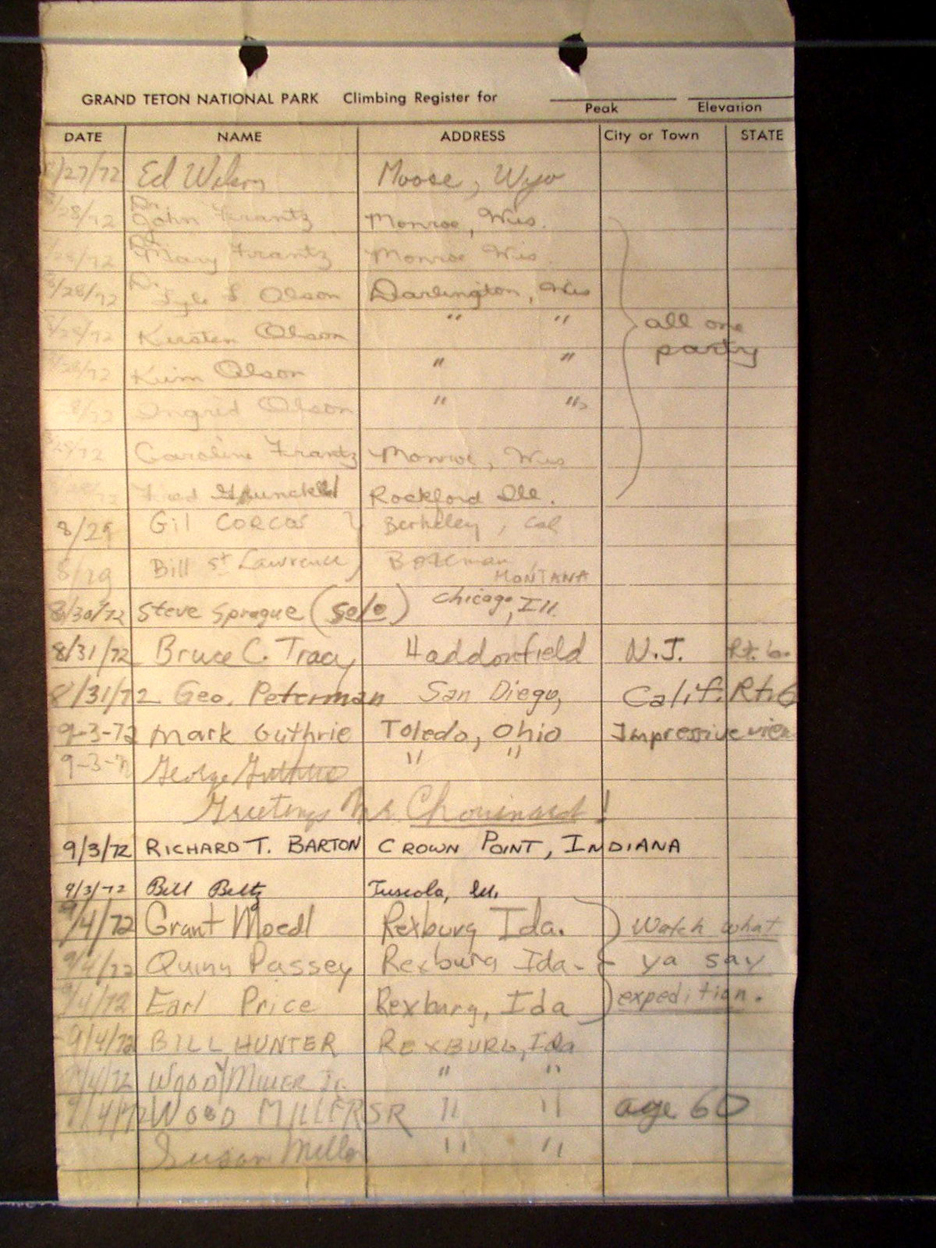 GRAND TETON NATIONAL PARK Climbing Register for
Peak Elevation
DATE NAME ADDRESS City or Town STATE
8/27/72 Ed Wilson Moose, Wyo
8/28/72 Dr. John Frantz Monroe, Wis.
8/28/72 Dr. Mary Frantz Monroe Wis.
8/28/72 Dr. Lyle L Olson Darlington, Wis
8/28/72 Kirsten Olson " "
all one
8/28/72 Kim Olson " "
party
8/28/72 Ingrid Olson " "
8/28/72 Caroline Frantz Monroe, Wis
8/28/72 Fred Rockford Ill.
8/29 Gil Corcos } Berkeley, Cal
8/29 Bill St Lawrence Bozeman
MONTANA
8/30/72 Steve Sprague (solo) Chicago, Ill.
8/31/72 Bruce C. Tracy Haddonfield N.J. Rt. 6.
8/31/72 Geo. Peterman San Diego, Calif. Rt. 6
9-3-72 Mark Guthrie Toledo, Ohio Impressive view
9-3-72 George Guthrie " "
Greetings Mr. Chouinard!
9/3/72 RICHARD T. BARTON CROWN POINT, INDIANA
9/3/72 Bill Beltz Tuscola, Ill.
9/4/72 Grant Moedl Rexburg Ida. Watch what
9/4/72 Quinn Passey Rexburg Ida. ya say
9/4/72 Earl Price Rexburg, Ida expedition.
9/4/72 BILL HUNTER REXBURG, Ida
9/4/72 WOODY MILLER Jr. " "
9/4/72 WOOD MILLER SR " " age 60
Susan Miller " "